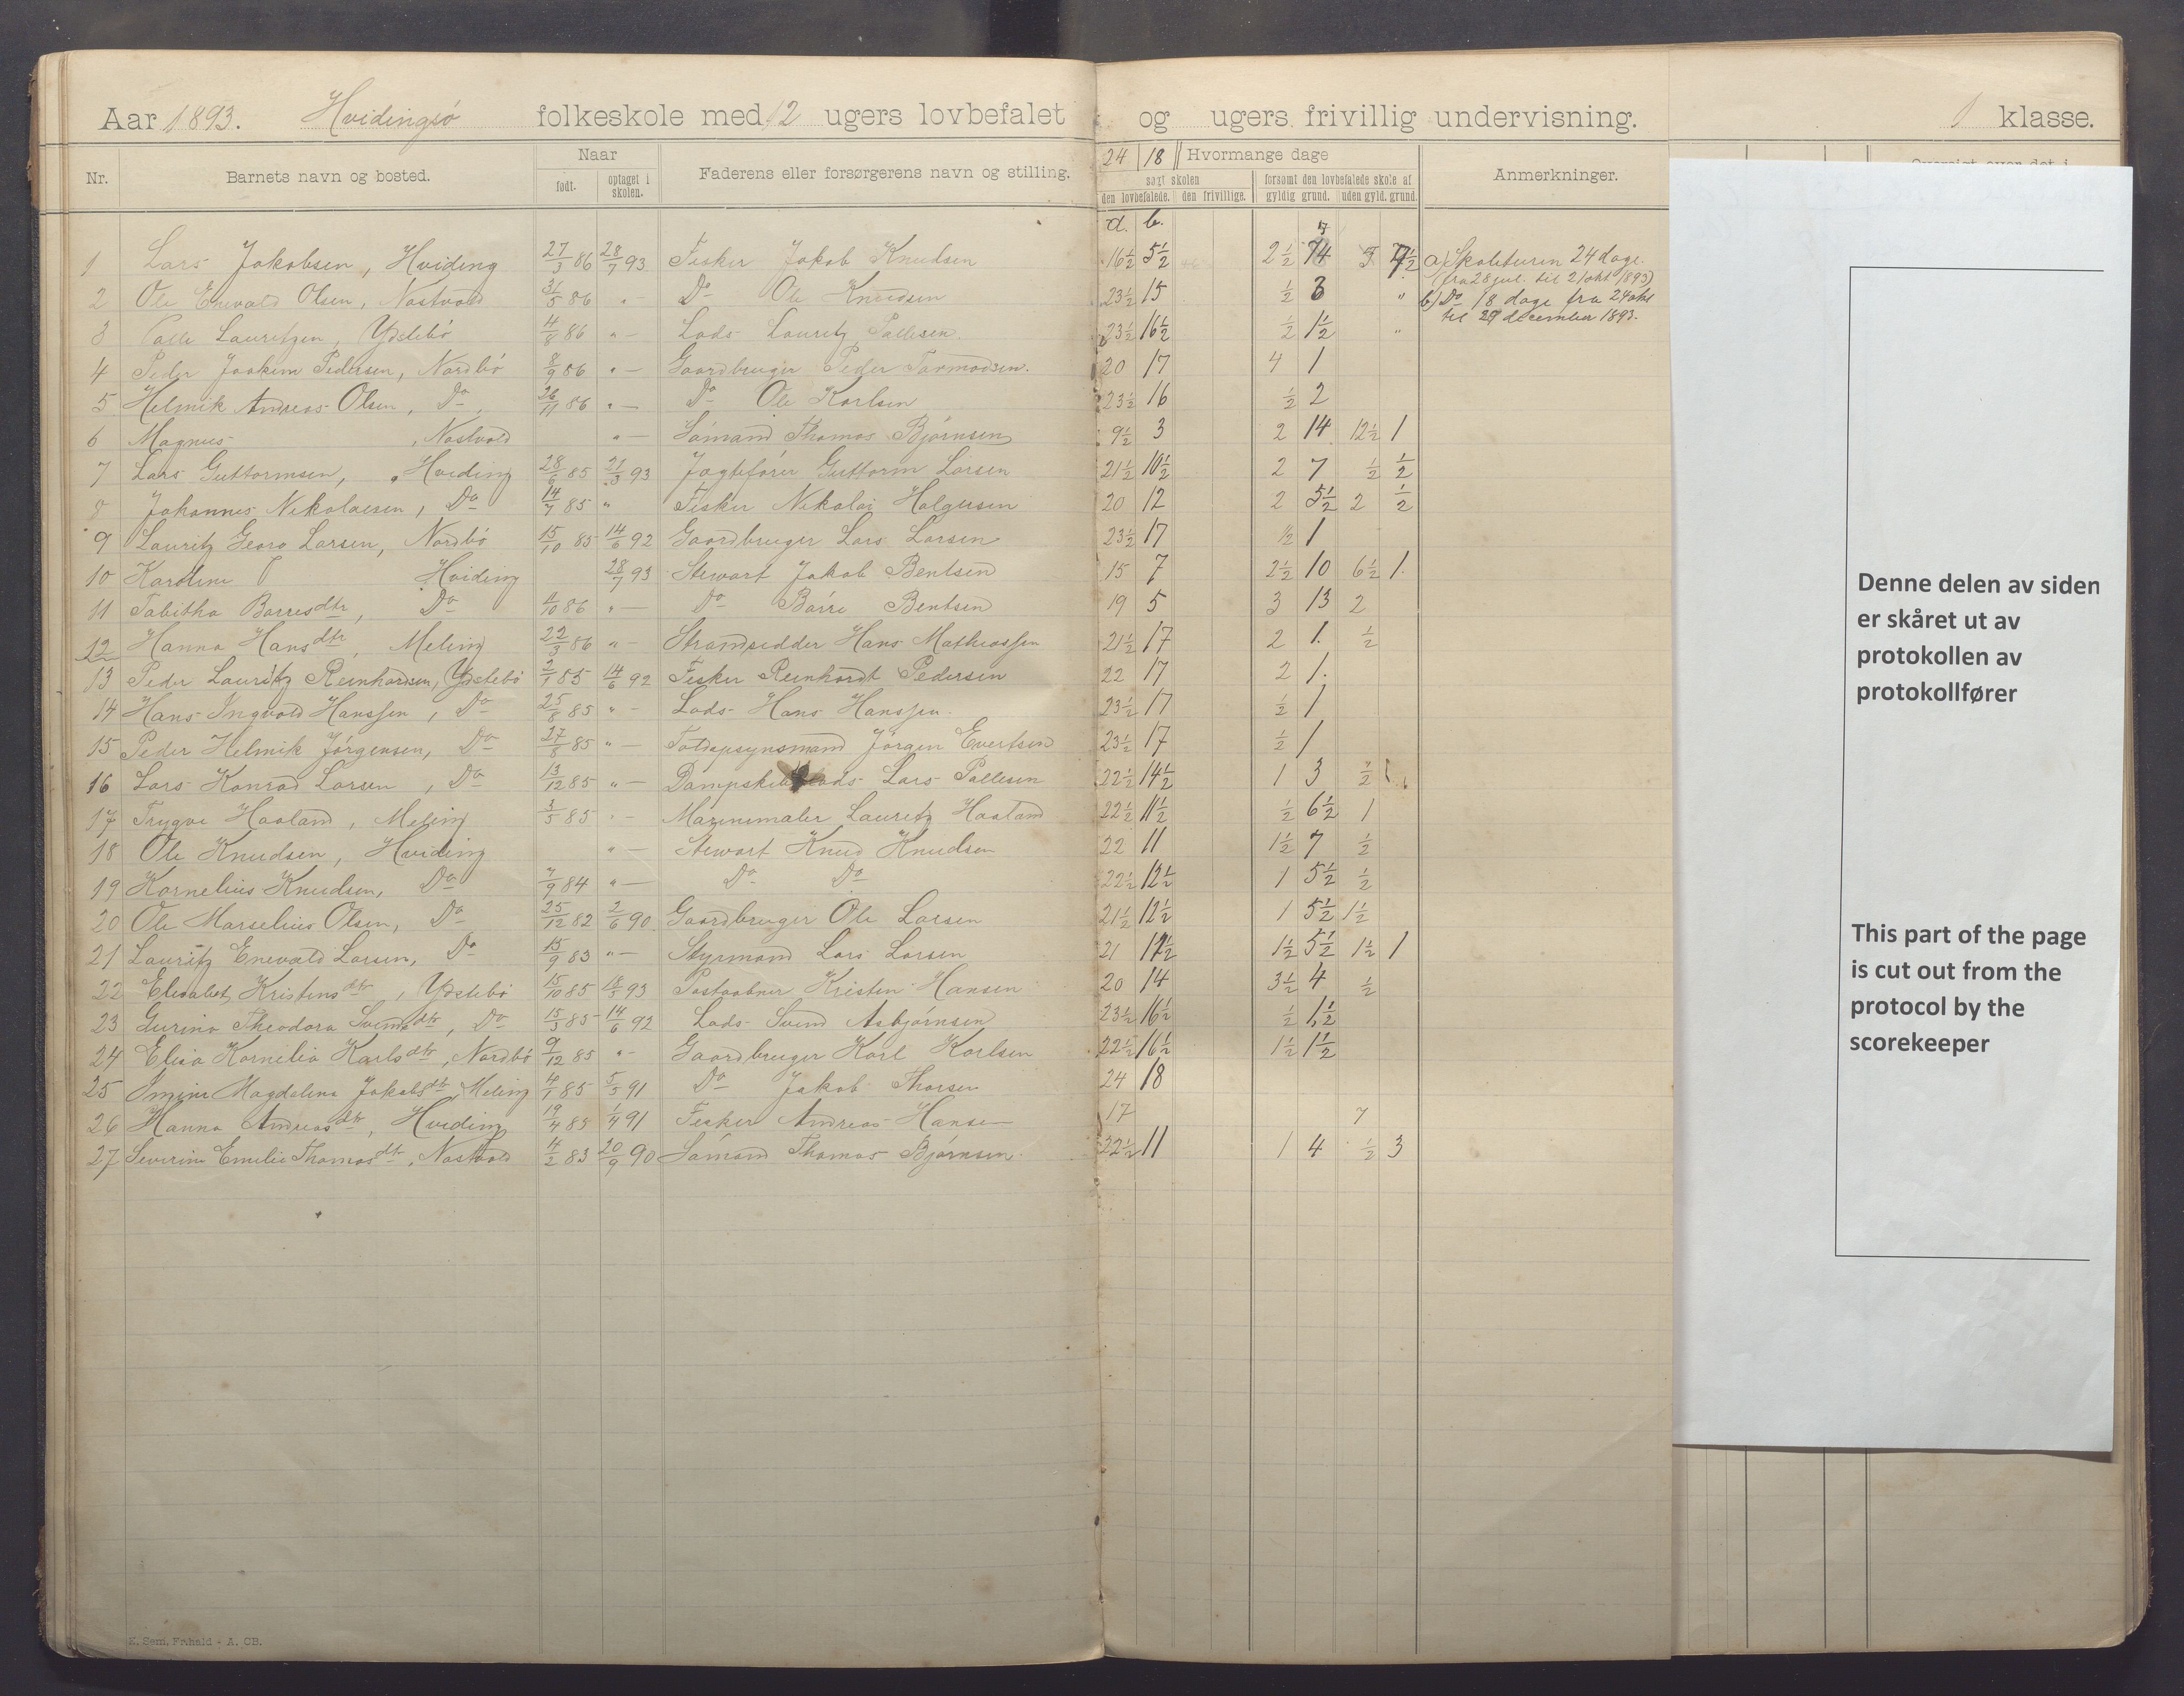 Aar 1893. Hvidingsö folkeskole med 12 ugers lovbefalet og ugers frivillig undervisning. 1 klasse.
Nr. Barnets navn og bosted. Naar født. optaget i skolen. Faderens eller forsørgerens navn og stilling. 24 18 Hvormange dage søgt skolen den lovbefalede. den frivillige. forsømt den lovbefalede skole af gyldig grund. uden gyld. grund. Anmerkninger.
a. b.
1 Lars Jakobsen, Hviding 27/3 86 28/7 93 Fisker Jakob Knudsen 16½ 5½ 2½ a) Skoleturen 24 dage.
(fra 28 jul. til 21 okt 1893)
2 Ole Enevald Olsen, Nastvold 31/5 86 " — Do Ole Knudsen 23½ 15 ½ 3 " b) Do 18 dage fra 24 okt
til 29 december 1893.
3 Palle Lauritzen, Ydstebö 4/8 86 " — Lods Lauritz Pallesen. 23½ 16½ ½ 1½ "
4 Peder Joakim Pedersen, Nordbö 8/9 86 " — Gaardbruger Peder Tormodsen. 20 17 4 1
5 Helmik Andreas Olsen, Do 26/11 86 " — Do Ole Karlsen 23½ 16 ½ 2
6 Magnus , Nastvold " — Sömand Thomas Björnsen 9½ 3 2 14 12½ 1
7 Lars Guttormsen, Hviding 28/6 85 21/3 93 Jagtefører Guttorm Larsen 21½ 10½ 2 7 ½ ½
8 Johannes Nikolaisen, Do 14/7 85 " Fisker Nikolai Halgesen 20 12 2 5½ 2 ½
9 Lauritz Georg Larsen, Nordbö 15/10 85 14/6 92 Gaardbruger Lars Larsen 23½ 17 ½ 1
10 Karoline Hviding 28/7 93 Stewart Jakob Bentsen 15 7 2½ 10 6½ 1.
11 Tabitha Börresdtr, Do /10 86 " — Do Börre Bentsen 19 5 3 13 2
12 Hanna Hansdtr, Meling 22/3 86 " — Strandsidder Hans Mathiassen 21½ 17 2 1. ½
13 Peder Lauritz Reinhardsen, Ydstebö 2/1 85 14/6 92 Fisker Reinhardt Pedersen 22 17 2 1.
14 Hans Ingvald Hanssen, Do 25/8 85 " — Lods Hans Hanssen. 23½ 17 ½ 1
15 Peder Helmik Jörgensen, Do 27/8 85 " — Toldopsynsmand Jörgen Evertsen 23½ 17 ½ 1
16 Lars Konrad Larsen, Do 13/12 85 " — Lars Pallesen 22½ 14½ 1 3
17 Trygve Haaland, Meling 3/5 85 " — Marinemaler Lauritz Haaland 22½ 11½ ½ 6½ 1
18 Ole Knudsen, Hviding " — Stewart Knud Knudsen 22 11 1½ 7 ½
19 Kornelius Knudsen, Do 7/9 84 " — Do Do 22½ 12½ 1 5½ ½
20 Ole Marselius Olsen, Do 25/12 82 2/6 90 Gaardbruger Ole Larsen 21½ 12½ 1 5½ 1½
21 Lauritz Enevald Larsen, Do 15/9 83 " — Styrmand Lars Larsen 21 1½ 5½ 1½ 1
22 Elisabet Kristensdtr, Ydstebö 15/10 85 18/5 93 Postaabner Kristen Hansen 20 14 3½ 4 ½
23 Gurina Theodora Svendsdtr, Do 15/3 85 14/6 92 Lods Svend Asbjörnsen 23½ 16½ ½ 1½
24 Elisa Kornelia Karlsdtr, Nordbö 9/12 85 " — Gaardbruger Karl Karlsen 22½ 16½ 1½ 1½
25 Magdalena Jakobsdtr, Meling 4/1 85 5/5 91 Do Jakob Thorsen 24 18
26 Hanna Andreasdtr, Hviding 19/4 83 1/4 91 Fisker Andreas Hansen 17 7
27 Severine Emilie Thomasdtr, Nastvold 4/2 83 20/9 90 Sömand Thomas Björnsen. 22½ 11 1 4 ½ 3
Denne delen av siden
er skåret ut av
protokollen av
protokollfører
This part of the page
is cut out from the
protocol by the
scorekeeper